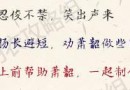 忍俊不禁，笑出声来
扬长避短，功萧韶做些
上前帮助萧韶，一起制